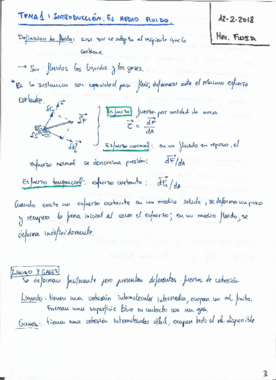 TEMA 1: INTRODUCCIÓN. EL MEDIO FLUIDO.
12-2-2018
Mec. Fluidos
Definición de fluido: cuerpo que se adapta al recipiente que lo contiene.
→ Son fluidos los líquidos y los gases.
* Es la sustancia con capacidad para fluir, deformarse ante el mínimo esfuerzo
cortante.
Esfuerzo: fuerza por unidad de área
τ = dF/dA
Esfuerzo normal: en un fluido en reposo, el
esfuerzo normal se denomina presión: dF/dA
Esfuerzo tangencial: esfuerzo cortante: dF/dA
Cuando existe un esfuerzo cortante en un medio sólido, se deforma un poco
y recupera la forma inicial al cesar el esfuerzo; en un medio fluido, se
deforma indefinidamente.
LÍQUIDO Y GASES
Se deforman fácilmente pero presentan diferentes fuerzas de cohesión
Líquido: tienen una cohesión intermolecular intermedia, ocupan un vol. finito,
forman una superficie libre en contacto con un gas
Gases: tienen una cohesión intermolecular débil, ocupan todo el vol. disponible
3